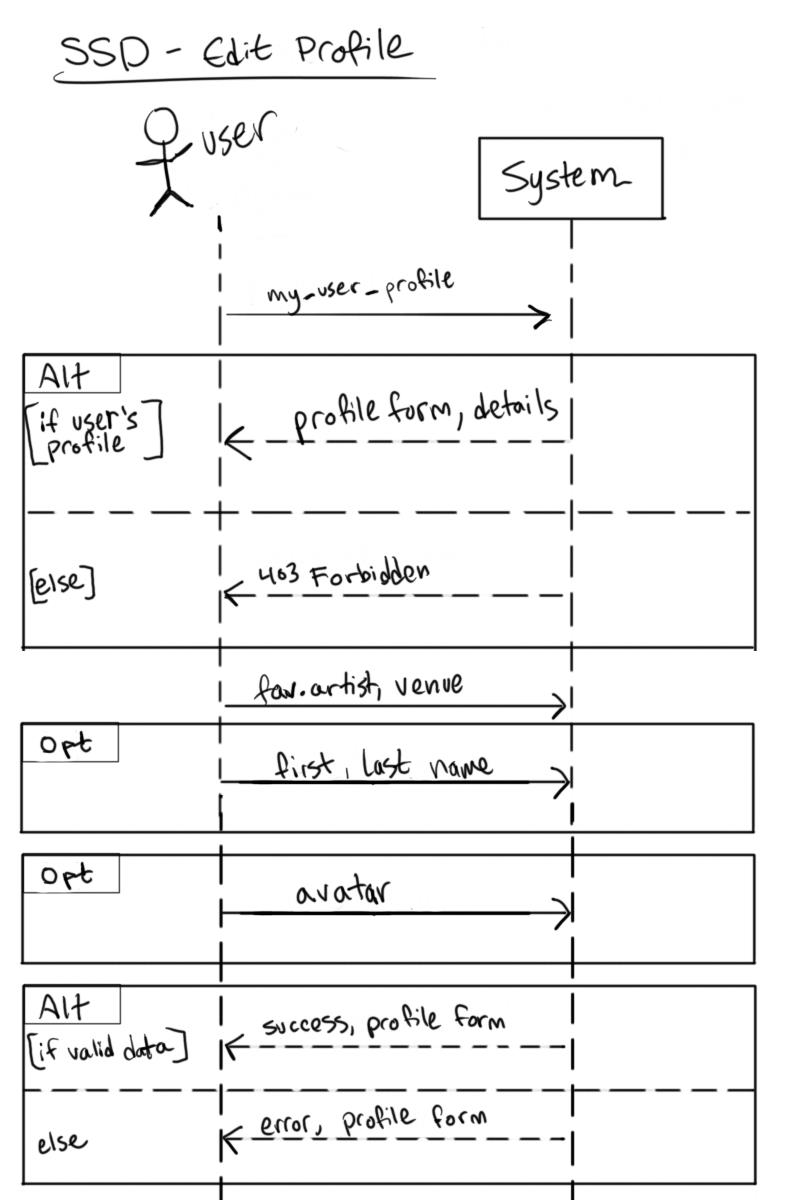 SSD - Edit Profile
user
System
my_user_profile
Alt
[if user's
profile]
profile form, details
[else]
403 Forbidden
fav.artist, venue
Opt
first, last name
Opt
avatar
Alt
[if valid data]
success, profile form
else
error, profile form